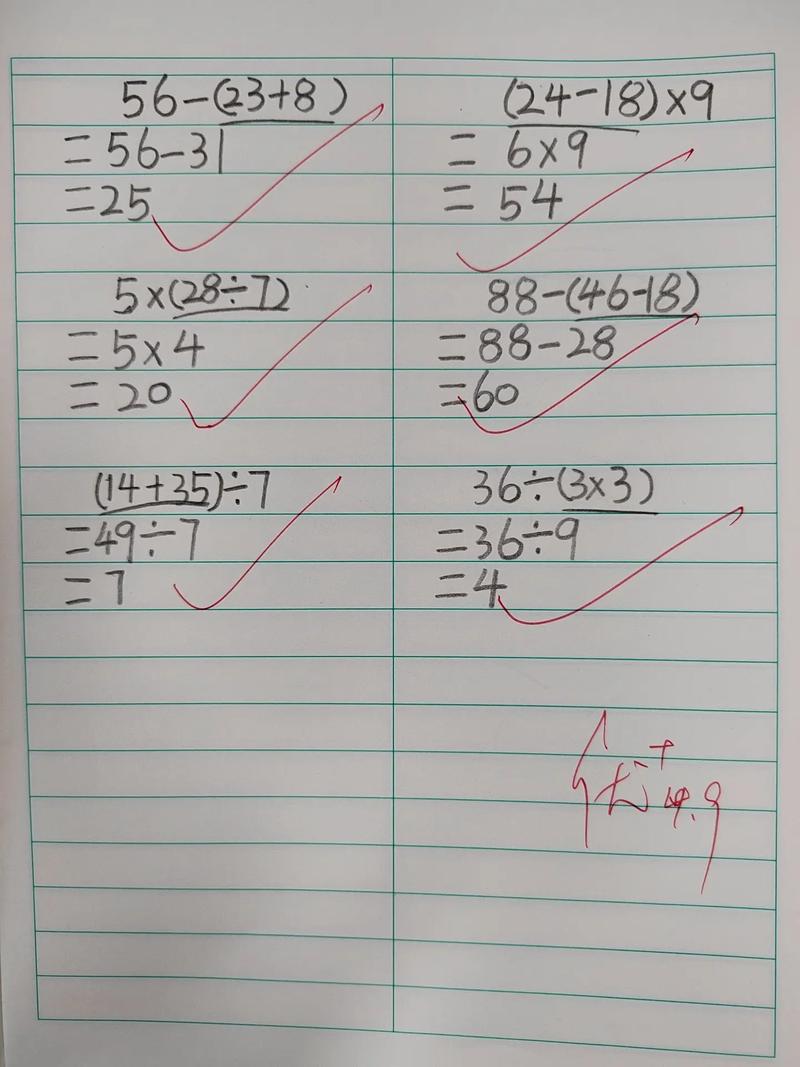 56-(23+8)
=56-31
=25
(24-18)×9
=6×9
=54
5×(28÷7)
=5×4
=20
88-(46-18)
=88-28
=60
(14+35)÷7
=49÷7
=7
36÷(3×3)
=36÷9
=4
优+
4.9